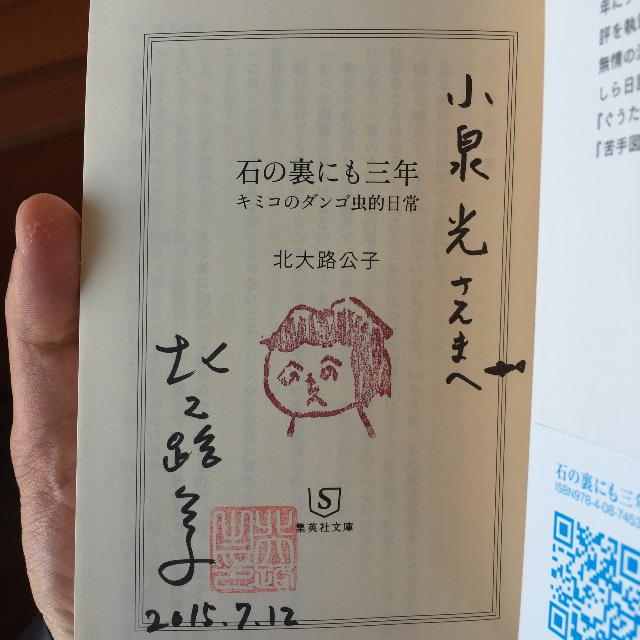 小泉 光 さえまへ
石の裏にも三年
キミコのダンゴ虫的日常
北大路公子
北大路公子
集英社文庫
2015.7.12
年に
評を執
無情の
しら日
『ぐうた
『苦手図
石の裏にも三
ISBN978-4-08-745